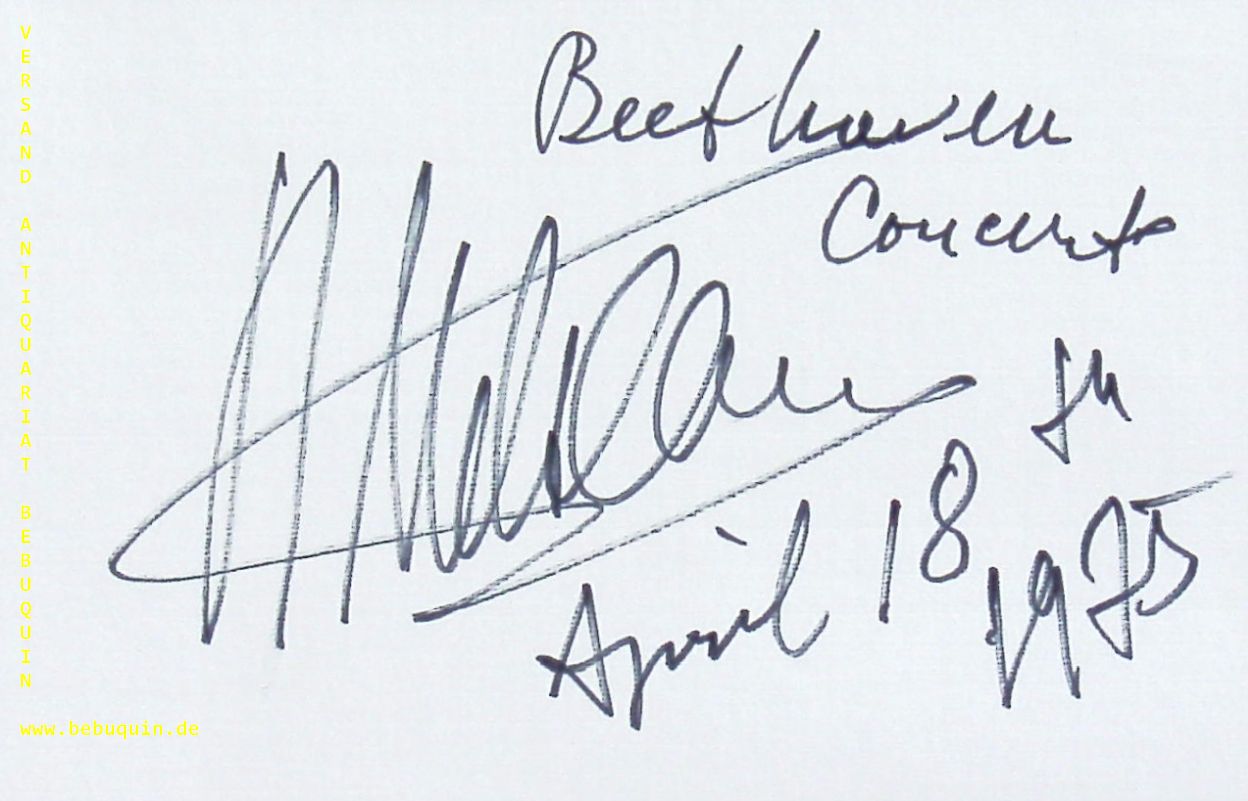 Beethoven
Concerto
April 18
1975
VERSAND ANTIQUARIAT BEBUQUIN
www.bebuquin.de